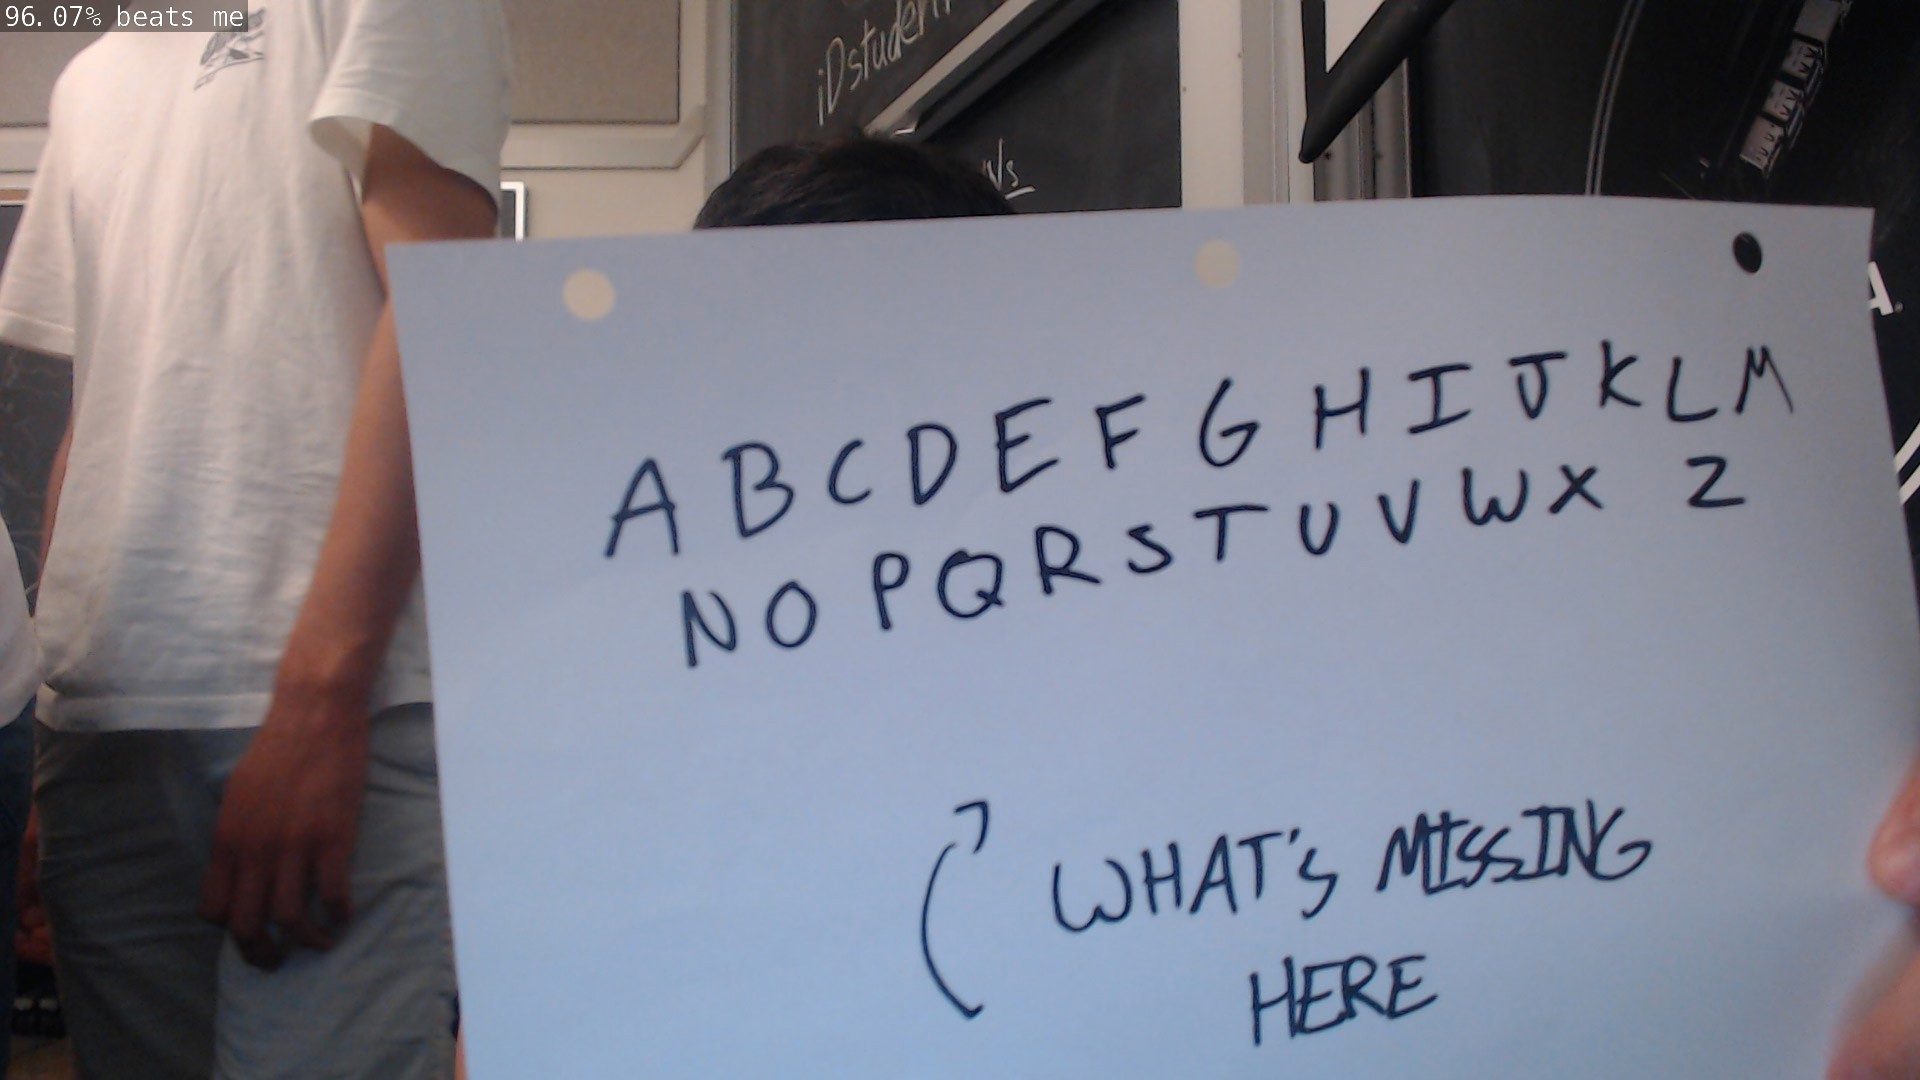 96.07% beats me
iDstudent
A B C D E F G H I J K L M
N O P Q R S T U V W X Z
WHAT'S MISSING
HERE